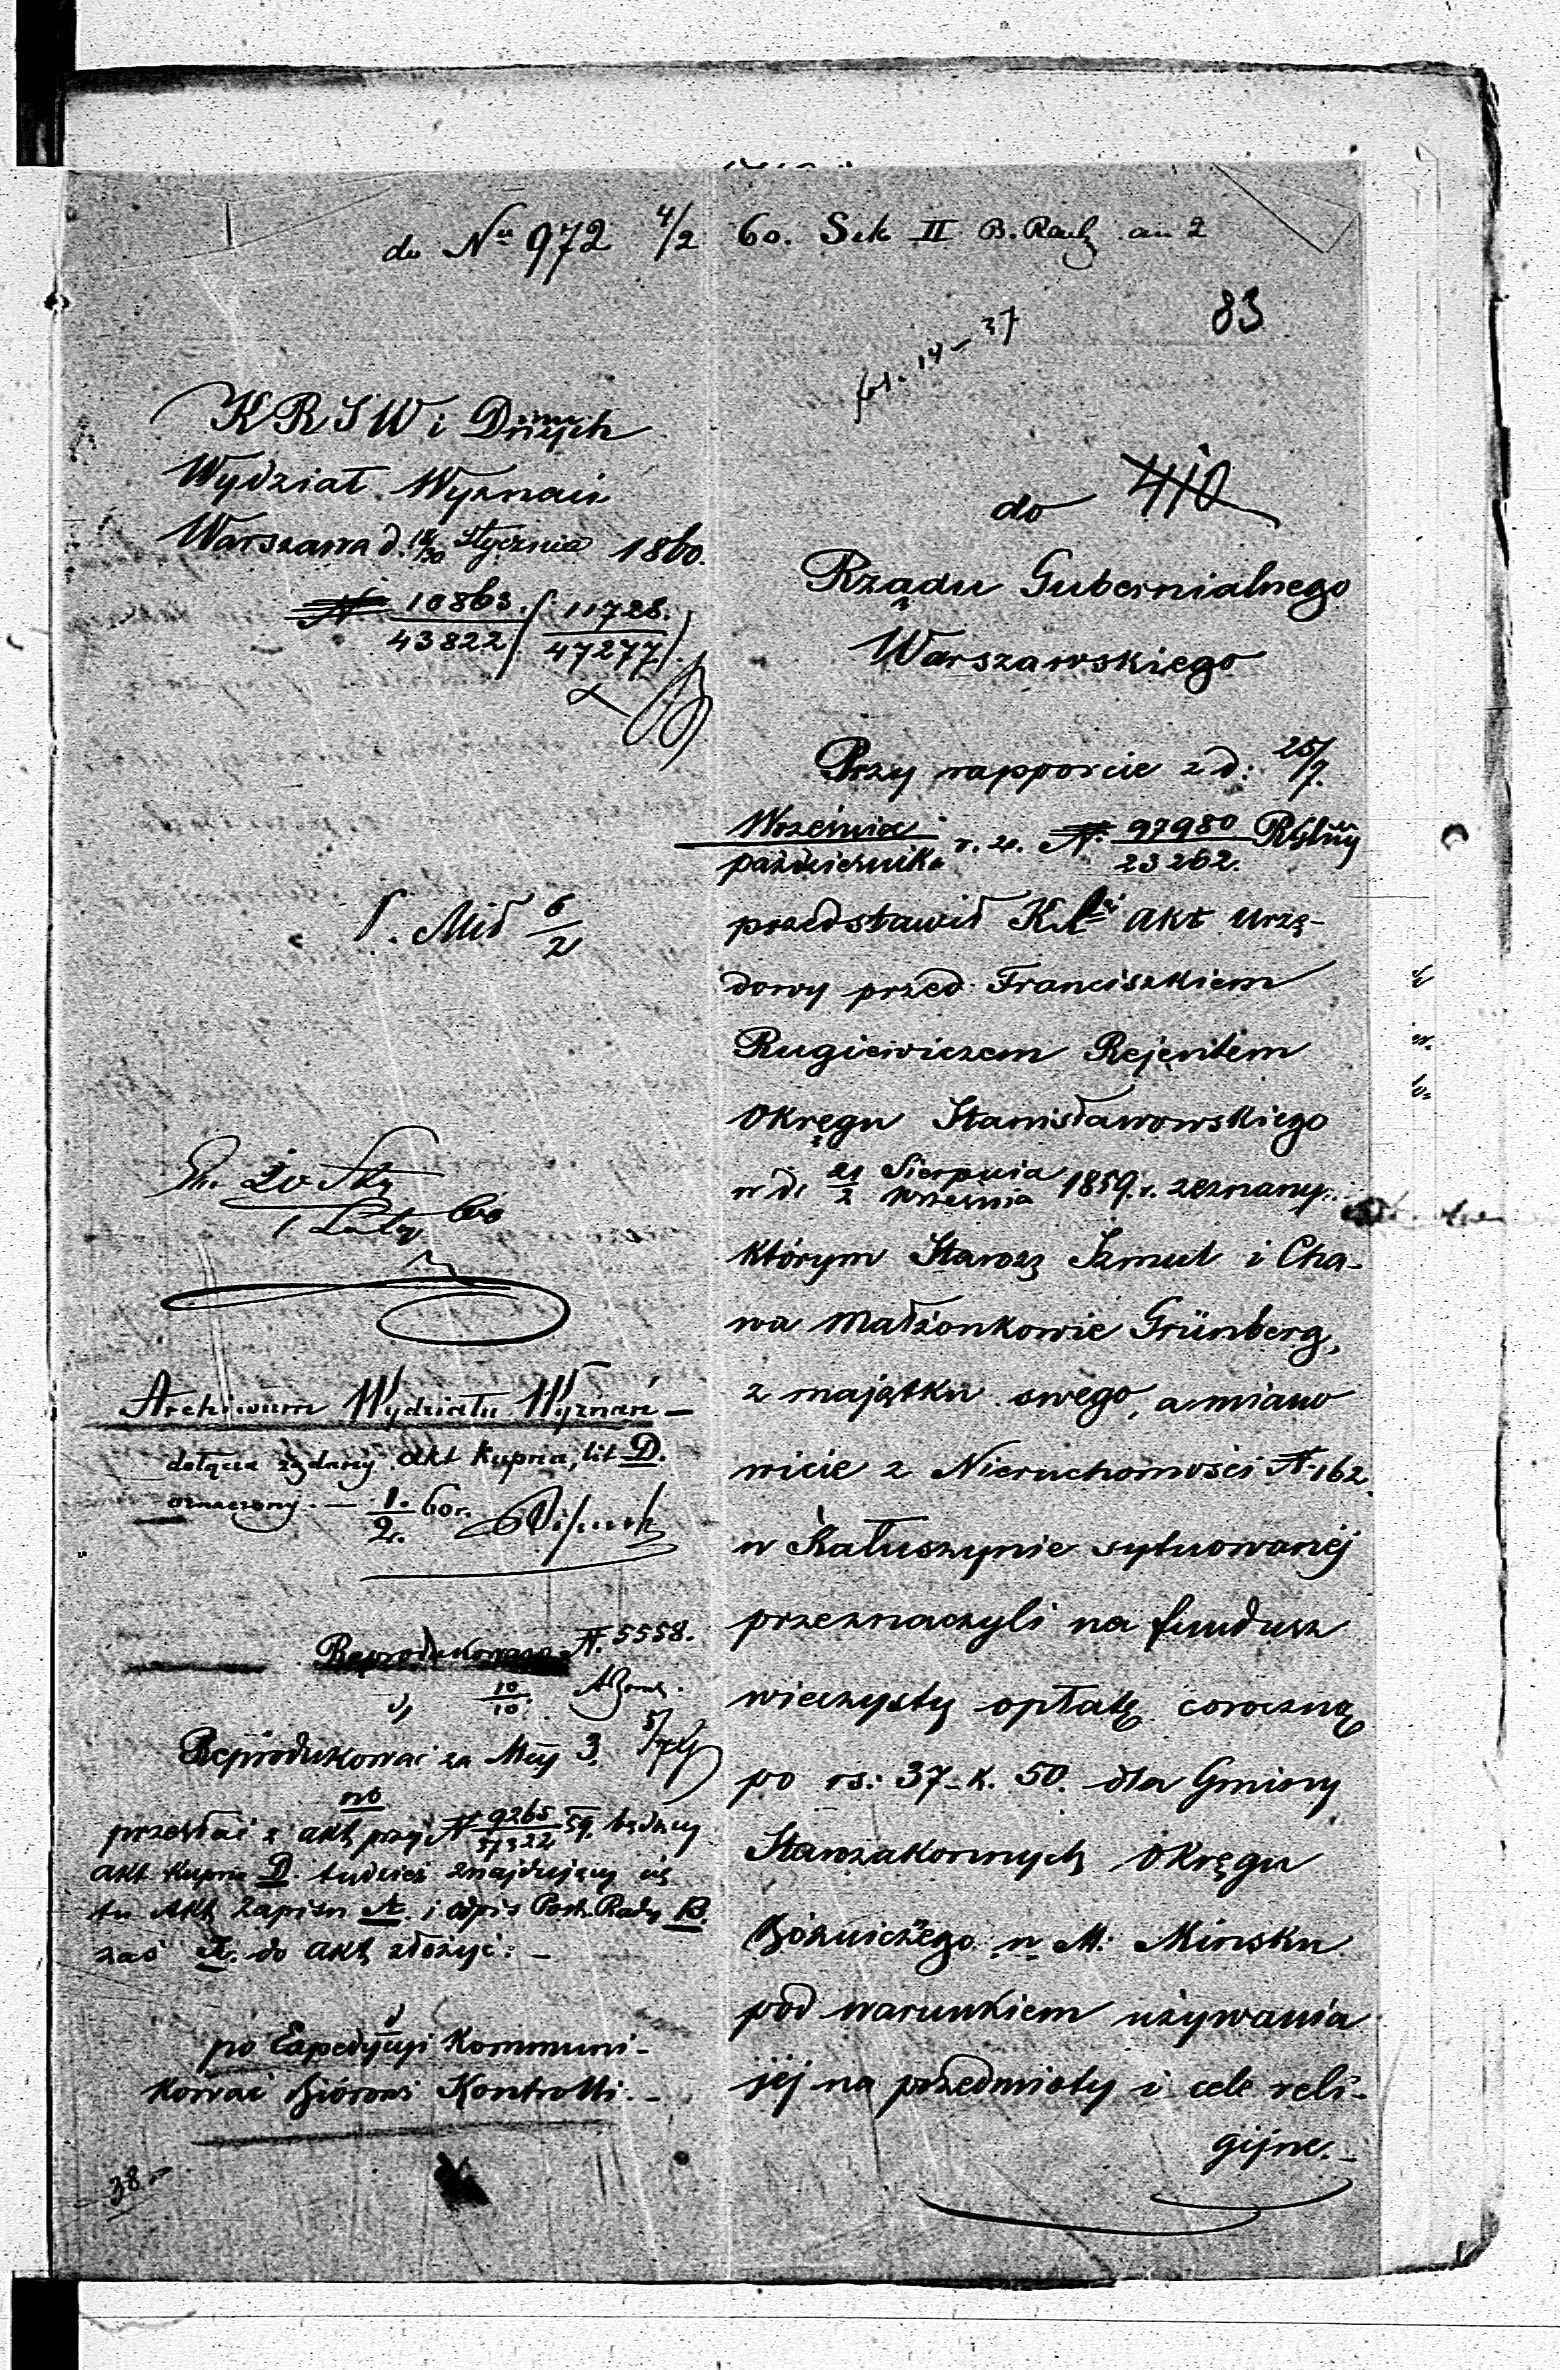 do Nu 972 4/2 60. Sek II B. Rach an 2
83
14 - 37
KRSW i D
Wydział Wyznań
Warszawa d. 18/30 Stycznia 1860.
N 10863/43822 / 11728./47277 /.
do 410
Rządu Gubernialnego
Warszawskiego
Przy rapporcie z d: 25/7.
Września/października r. z. N. 97980/23262.
przedstawił akt urzę-
dowy przed Franciszkiem
Rugiewiczem Rejentem
Okręgu Stanisławowskiego
w d. 21 Sierpnia/2 Września 1859. r. zeznany
którym Starozz Szmul i Cha-
wa Małżonkowie Grünberg,
z majątku swego, a miano
wicie z Nieruchomości N. 162.
w Kałuszynie sytuowanéj
przeznaczyli na fundusz
wieczysty opłatę coroczną
po rs: 37 - k. 50. dla Gminy
Starozakonnych Okręgu
Bóżniczego w M: Mińsku
pod warunkiem używania
jéj na przedmioty i cele reli-
gijne. -
6/2
Archiwum Wydziału Wyznań -
dołącza żądany Akt Kupna, lit D.
oznaczony. - 1./2. 60 r.
Reprodukowano N. 5558.
10/10.
Reprodukować za Mcy 3.
przesłać z akt przy N 9265 59. będący
akt Kupna D. tudzież znajdujący się
tu Akt Zapisu A. i odpis Post. Rady B.
zaś do akt złożyć: -
po Expedycyi Kommuni-
kować Biórowi Kontrolli. -
38.